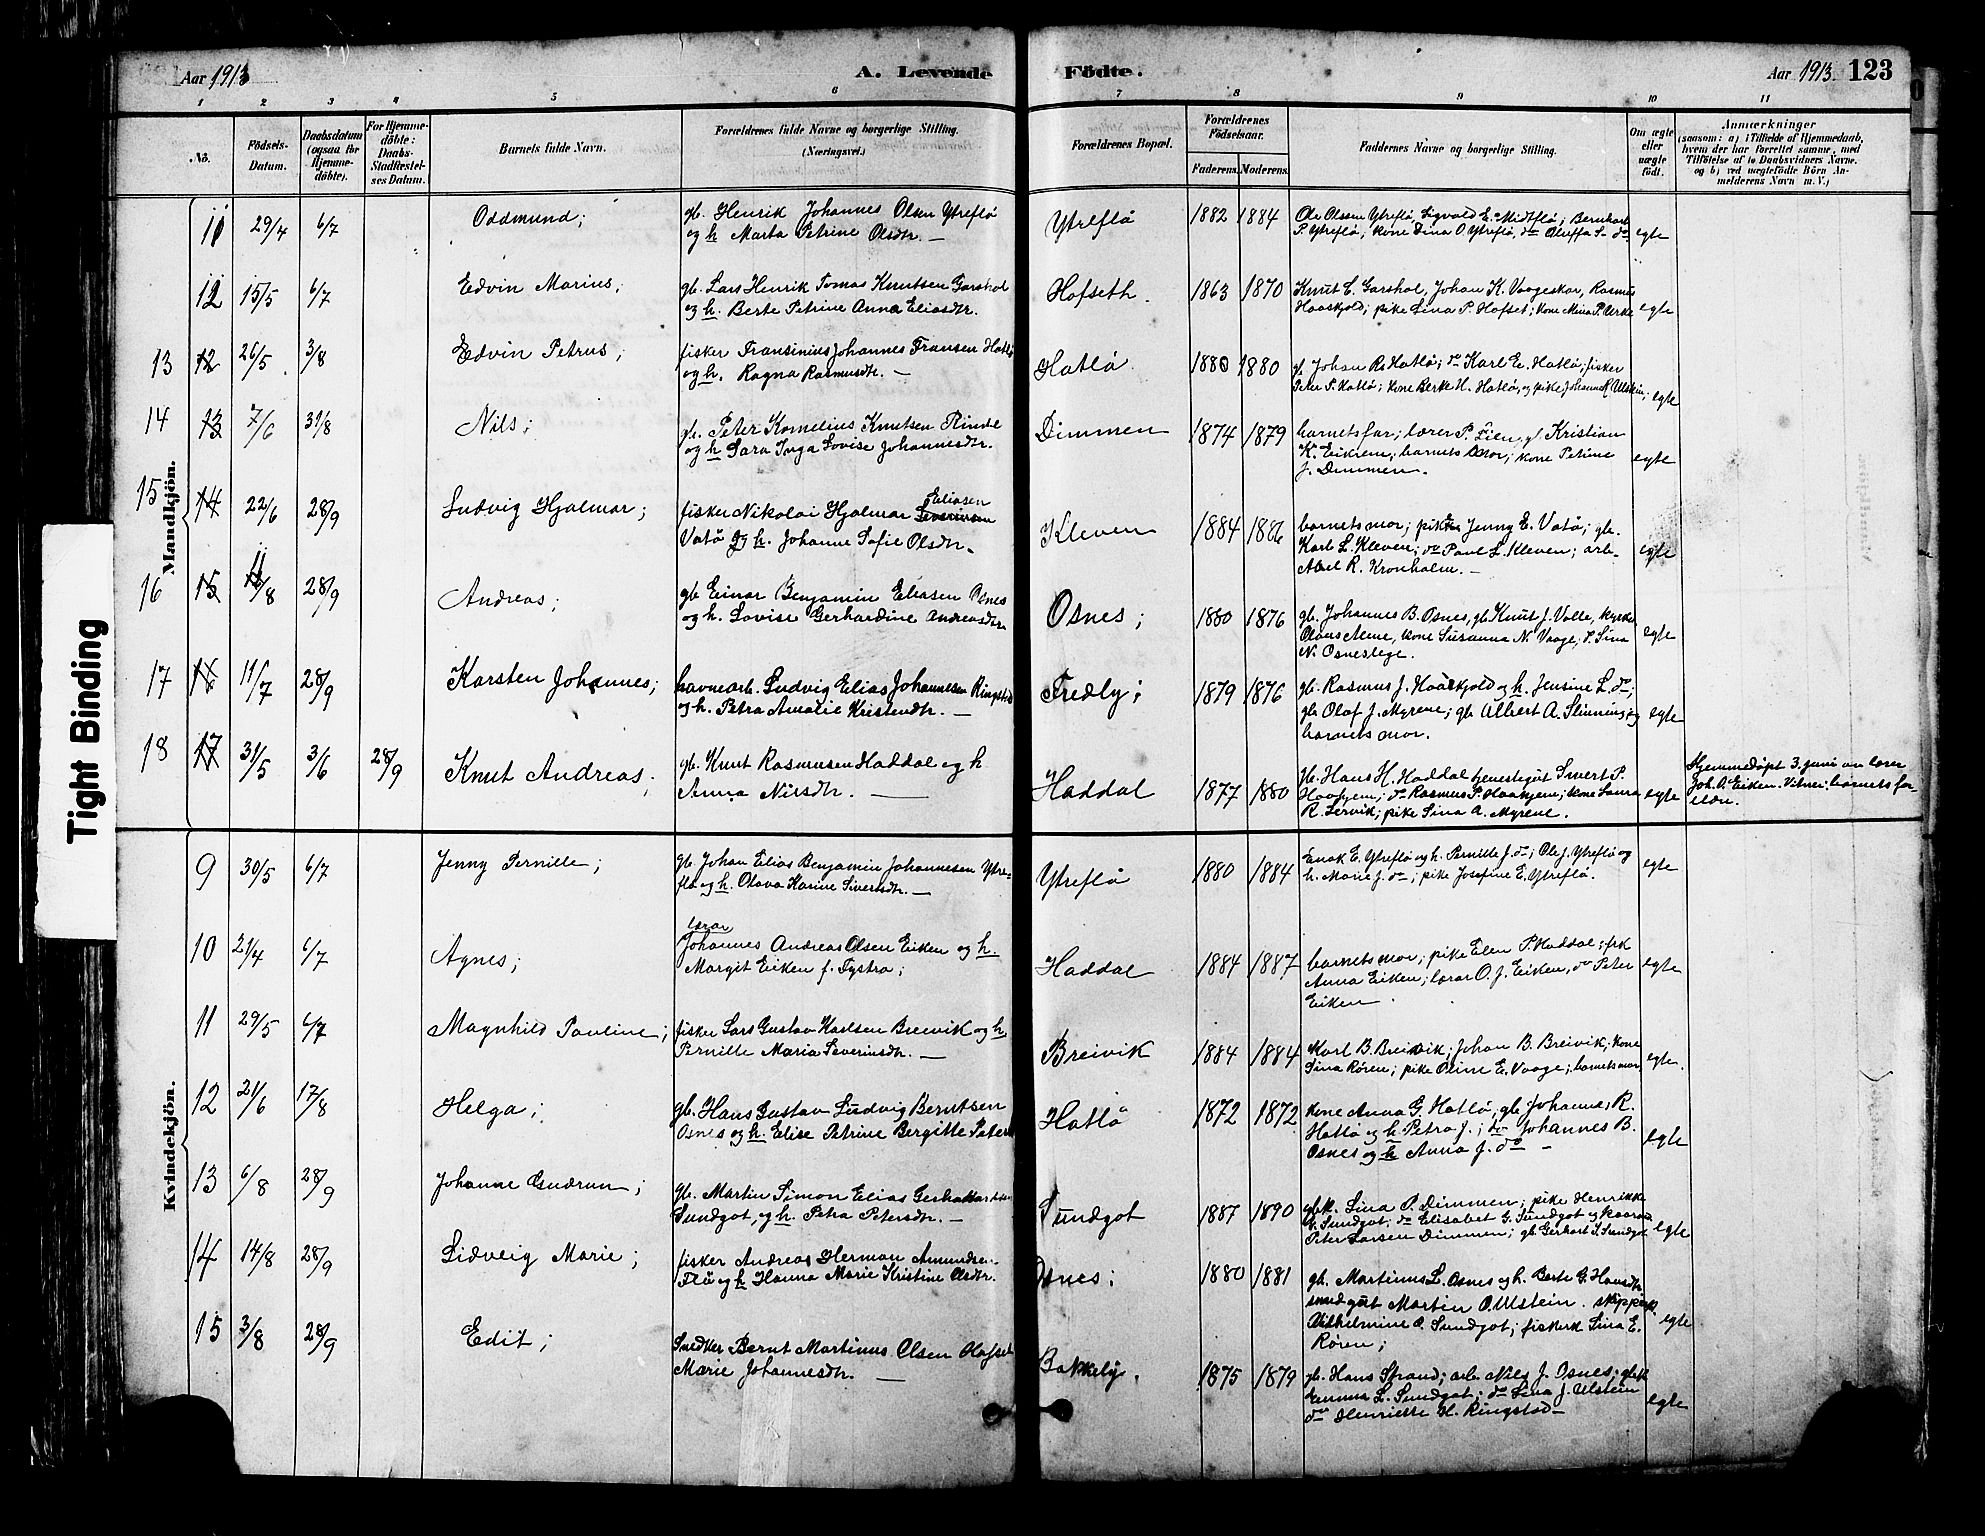 Aar 1913
A. Levende Födte.
Aar 1913. 123
1 2 3 4 5 6 7 8 9 10 11
No.
Födsels-Datum.
Daabsdatum (ogsaa for Hjemme-döbte).
For Hjemme-döbte: Daabs-Stadfæstel-ses Datum.
Barnets fulde Navn.
Forældrenes fulde Navne og borgerlige Stilling. (Næringsvei.)
Forældrenes Bopæl.
Forældrenes Födselsaar.
Faderens. Moderens.
Faddernes Navne og borgerlige Stilling.
Om ægte eller uægte födt.
Anmærkninger
(saasom: a) i Tilfælde af Hjemmedaab, hvem der har forrettet samme, med Tilföielse af to Daabsvidners Navne. og b) ved uægtefödte Börn An-melderens Navn m. V.)
Mandkjön.
11 29/4 6/7 Oddmund; gb. Henrik Johannes Olsen Ytreflö
og h Marta Petrine Olsdtr. —
Ytreflö 1882 1884 Ole Olsen Ytreflö, Sigvald E. Midtflö; Bernhard
P. Ytreflö, kone Dina O Ytreflö, do Oleffa S. do egte
12 15/5 6/7 Edvin Marius; gb. Lars Henrik Tomas Knutsen Garshol
og h. Berte Petrine Anna Eliasdtr.
Hofseth. 1863 1870 Knut E. Garshol, Johan K. Vaageskar, Rasmus
Haaskjold; pike Lina P. Hofset; kone Mina P. Urke egte
13 12 26/5 3/8 Edvin Petrus; fisker Fransinius Johannes Fransen Hatlö
og h. Ragna Rasmusdtr. —
Hatlö 1880 1880 g. Johan R. Hatlö; do Karl E. Hatlö; fisker
Peter S. Hatlö; kone Berte H. Hatlö, og pike Johanne K. Ulstein; egte
14 13 7/6 31/8 Nils; gb. Peter Kornelius Knutsen Rinde
og h Sara Inga Lovise Johannesdtr.
Dimmen 1874 1879 barnets far; lærer P. Lien, g. Kristian
K. Eikrem; barnets mor; kone Petrine
J. Dimmen. egte
15 14 22/6 28/9 Ludvig Hjalmar; fisker Nikolai Hjalmar Severinsen Eliasen
Vatö og h. Johanne Sofie Olsdtr.
Kleven 1884 1886 barnets mor; pike Jenny E. Vatö; gb.
Karl L. Kleven; do Paul L. Kleven; arb.
Abel R. Kronholm. — egte
16 15 11/8 28/9 Andreas; gb. Einar Benjamin Eliasen Osnes
og h. Lovise Gerhardine Andreasdtr.
Osnes; 1880 1876 gb. Johannes B. Osnes, gb. Knut J. Valle,
Olaus Aleme, kone Susanna N. Vaage; Sina
N. Osneslege. egte
17 16 11/7 28/9 Karsten Johannes; havnearb. Ludvig Elias Johannesen Ringstad
og h. Petra Amalie Kristendtr. —
Fredly; 1879 1876 gb. Rasmus J. Haaskjold og h. Jensine L. do;
gb. Olaf J. Myrene; gb. Albert A. Slinning; og
barnets mor. egte
18 17 31/5 3/6 28/9 Knut Andreas; gb. Knut Rasmussen Haddal og h
Anna Nilsdtr. —
Haddal 1877 1880 gb. Hans H. Haddal tjenestegut Sivert P.
Haaskjem; do Rasmus P. Haaskjem; kone Laura
R. Lervik; pike Sina A. Myrene. egte
Hjemmedöpt 3. juni av lærer
Joh. A. Eiken. Vitner: barnets for-
eldre.
Kvindekjön.
9 30/5 6/7 Jenny Pernille; gb. Johan Elias Benjamin Johannesen Ytre-
flö og h. Olava Karine Sivertsdtr. —
Ytreflö 1880 1884 Enok E. Ytreflö og h. Pernille J. do; Ole J. Ytreflö og
h. Marie J. do; pike Josefine E. Ytreflö. egte
10 21/4 6/7 Agnes; lærar
Johannes Andreas Olsen Eiken og h.
Margit Eiken f. Tystra;
Haddal 1884 1887 barnets mor; pike Elen P. Haddal; frk
Anna Eiken; lærar O. J. Eiken, do Peter
Eiken. egte
11 29/5 6/7 Magnhild Pauline; fisker Lars Gustav Karlsen Breivik og h
Pernille Maria Severinsdtr. —
Breivik 1884 1884 Karl B. Breivik; Johan B. Breivik; kone
Sina Rören; pike Oline E. Vaage; barnets mor. egte.
12 21/6 17/8 Helga; gb. Hans Gustav Ludvig Berntsen
Osnes og h. Elise Petrine Bergitte Peters
Hatlö 1872 1872 kone Anna G. Hatlö, gb. Johannes R.
Hatlö og h Petra J.; do Johannes B.
Osnes og h Anna J. do — egte
13 6/8 28/9 Johanne Gudrun; gb. Martin Simon Elias Gerhardsen
Sundgot, og h. Petra Petersdtr. —
Sundgot 1887 1890 gbk. Lina P. Dimmen; pike Henrikke
G. Sundgot; do Elisabet G. Sundgot og
Peter Larsen Dimmen; gb. Gerhart S. Sundgot egte
14 14/8 28/9 Lidveig Marie; fisker Andreas Herman Amundsen
Flö og h Hanna Marie Kristine Olsdtr.
Osnes; 1880 1881 gb. Martinus L. Osnes og h. Berte G. Hansdtr
smedgut Martin O. Ulstein. skipperk.
Vilhelmine O. Sundgot; fiskerk Lina E.
Rören; egte
15 3/8 28/9 Edit; Snedker Bernt Martinus Olsen Hofset
Marie Johannesdtr. —
Bakkely. 1875 1879 gb. Hans Strand; arb. Nils J. Osnes; gbk.
Emma L. Sundgot; do Lina J. Ulstein
do Henriette H. Ringstad — egte
Tight Binding